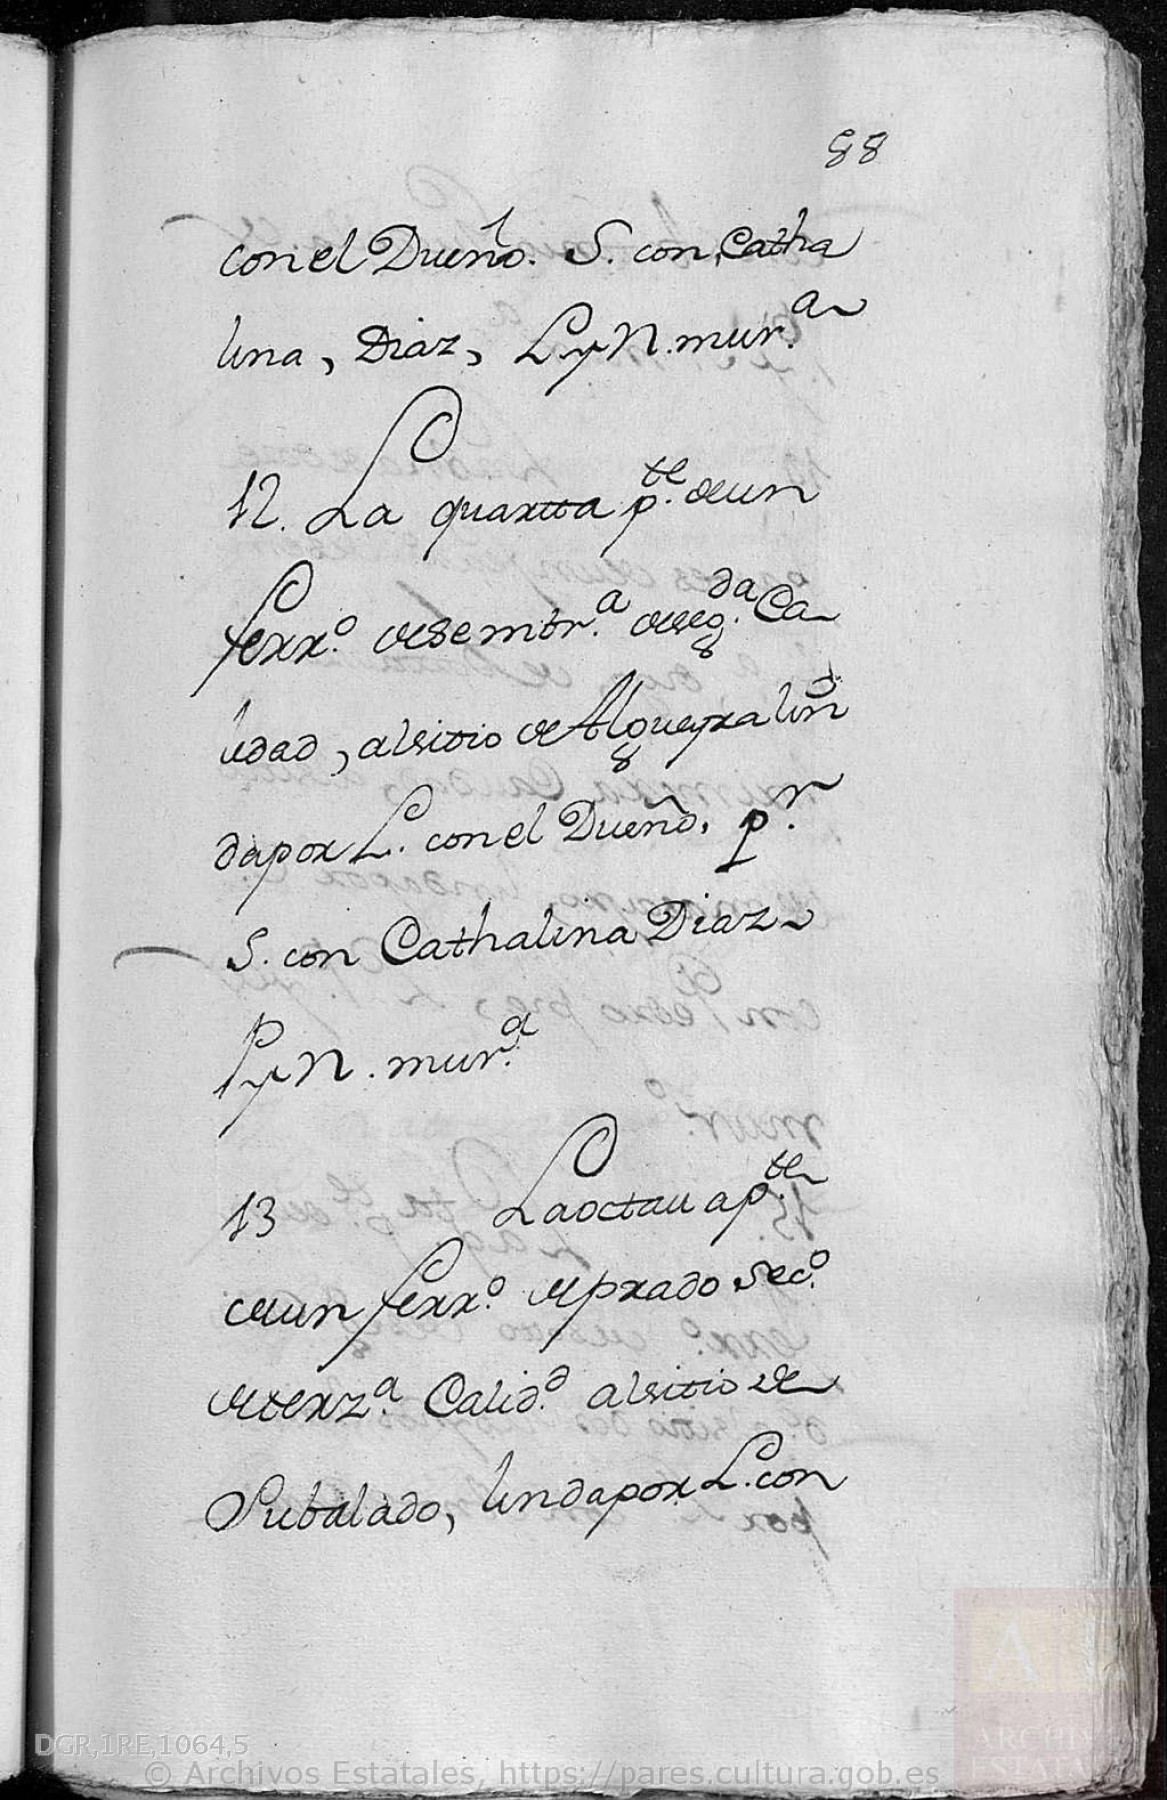 88
con el Dueño. S. con Catha
lina, Diaz, P. y N. mur.ª
12. La quartta p.te de un
ferr.º de sembr.ª de seg.da Ca
lidad, al sitio de Algueyra lin
da por L. con el Dueño, p.r
S. con Cathalina Diaz
P y N. mur.ª
13 La octava p.te
de un ferr.º de prado seco.
de terz.ª Calid.d al sitio de
Pubalado, linda por L. con
DGR,1RE,1064,5
© Archivos Estatales, https://pares.cultura.gob.es